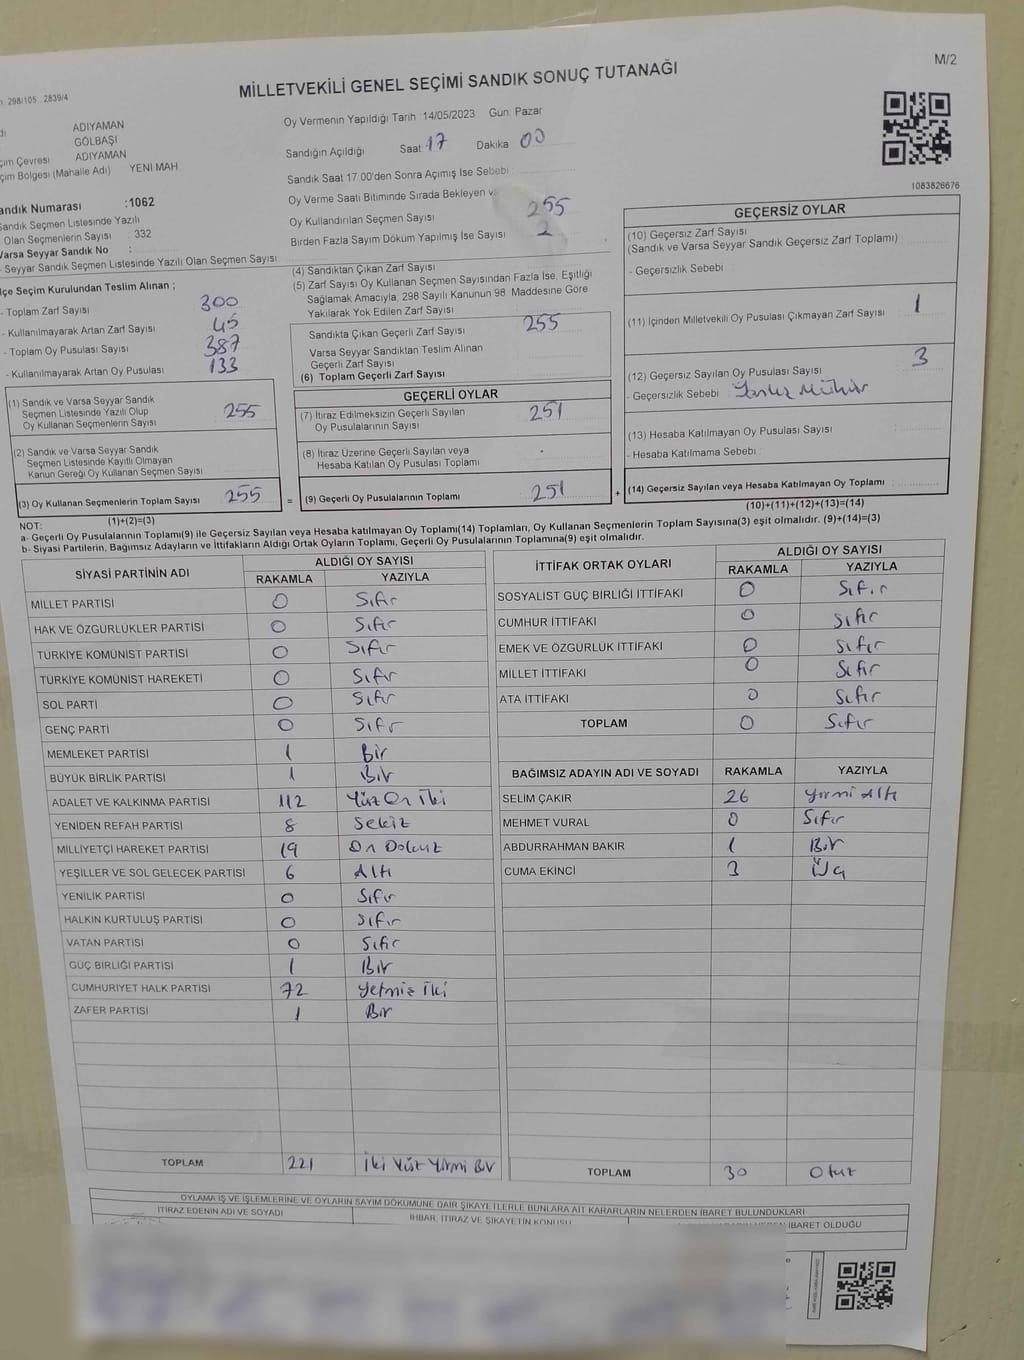 M/2
MİLLETVEKİLİ GENEL SEÇİMİ SANDIK SONUÇ TUTANAĞI
298/105 2839/4
ADIYAMAN
GÖLBAŞI
Çevresi ADIYAMAN
Bölgesi (Mahalle Adı) YENİ MAH
Sandık Numarası :1062
Sandık Seçmen Listesinde Yazılı
Olan Seçmenlerin Sayısı : 332
Varsa Seyyar Sandık No :
- Seyyar Sandık Seçmen Listesinde Yazılı Olan Seçmen Sayısı
Oy Vermenin Yapıldığı Tarih 14/05/2023 Gün: Pazar
Sandığın Açıldığı Saat 17 Dakika 00
Sandık Saat 17:00'den Sonra Açımış İse Sebebi
Oy Verme Saati Bitiminde Sırada Bekleyen
Oy Kullandırılan Seçmen Sayısı 255
Birden Fazla Sayım Döküm Yapılmış İse Sayısı 2
1083826676
İlçe Seçim Kurulundan Teslim Alınan ;
- Toplam Zarf Sayısı 300
- Kullanılmayarak Artan Zarf Sayısı 45
- Toplam Oy Pusulası Sayısı 387
- Kullanılmayarak Artan Oy Pusulası 133
(1) Sandık ve Varsa Seyyar Sandık
Seçmen Listesinde Yazılı Olup
Oy Kullanan Seçmenlerin Sayısı 255
(2) Sandık ve Varsa Seyyar Sandık
Seçmen Listesinde Kayıtlı Olmayan
Kanun Gereği Oy Kullanan Seçmen Sayısı
(3) Oy Kullanan Seçmenlerin Toplam Sayısı 255 =
(1)+(2)=(3)
(4) Sandıktan Çıkan Zarf Sayısı
(5) Zarf Sayısı Oy Kullanan Seçmen Sayısından Fazla İse, Eşitliği
Sağlamak Amacıyla, 298 Sayılı Kanunun 98. Maddesine Göre
Yakılarak Yok Edilen Zarf Sayısı
Sandıkta Çıkan Geçerli Zarf Sayısı 255
Varsa Seyyar Sandıktan Teslim Alınan
Geçerli Zarf Sayısı
(6) Toplam Geçerli Zarf Sayısı
GEÇERLİ OYLAR
(7) İtiraz Edilmeksizin Geçerli Sayılan
Oy Pusulalarının Sayısı 251
(8) İtiraz Üzerine Geçerli Sayılan veya
Hesaba Katılan Oy Pusulası Toplamı
(9) Geçerli Oy Pusulalarının Toplamı 251 +
GEÇERSİZ OYLAR
(10) Geçersiz Zarf Sayısı
(Sandık ve Varsa Seyyar Sandık Geçersiz Zarf Toplamı)
- Geçersizlik Sebebi
(11) İçinden Milletvekili Oy Pusulası Çıkmayan Zarf Sayısı 1
(12) Geçersiz Sayılan Oy Pusulası Sayısı 3
- Geçersizlik Sebebi : Yanlız Mühür
(13) Hesaba Katılmayan Oy Pusulası Sayısı
- Hesaba Katılmama Sebebi
(14) Geçersiz Sayılan veya Hesaba Katılmayan Oy Toplamı
(10)+(11)+(12)+(13)=(14)
NOT:
a- Geçerli Oy Pusulalarının Toplamı(9) ile Geçersiz Sayılan veya Hesaba katılmayan Oy Toplamı(14) Toplamları, Oy Kullanan Seçmenlerin Toplam Sayısına(3) eşit olmalıdır. (9)+(14)=(3)
b- Siyasi Partilerin, Bağımsız Adayların ve İttifakların Aldığı Ortak Oyların Toplamı, Geçerli Oy Pusulalarının Toplamına(9) eşit olmalıdır.
SİYASİ PARTİNİN ADI ALDIĞI OY SAYISI
RAKAMLA YAZIYLA
MİLLET PARTİSİ 0 Sıfır
HAK VE ÖZGÜRLÜKLER PARTİSİ 0 Sıfır
TÜRKİYE KOMÜNİST PARTİSİ 0 Sıfır
TÜRKİYE KOMÜNİST HAREKETİ 0 Sıfır
SOL PARTİ 0 Sıfır
GENÇ PARTİ 0 Sıfır
MEMLEKET PARTİSİ 1 Bir
BÜYÜK BİRLİK PARTİSİ 1 Bir
ADALET VE KALKINMA PARTİSİ 112 Yüz On İki
YENİDEN REFAH PARTİSİ 8 Sekiz
MİLLİYETÇİ HAREKET PARTİSİ 19 On Dokuz
YEŞİLLER VE SOL GELECEK PARTİSİ 6 Altı
YENİLİK PARTİSİ 0 Sıfır
HALKIN KURTULUŞ PARTİSİ 0 Sıfır
VATAN PARTİSİ 0 Sıfır
GÜÇ BİRLİĞİ PARTİSİ 1 Bir
CUMHURİYET HALK PARTİSİ 72 Yetmiş İki
ZAFER PARTİSİ 1 Bir
TOPLAM 221 İki Yüz Yirmi Bir
İTTİFAK ORTAK OYLARI ALDIĞI OY SAYISI
RAKAMLA YAZIYLA
SOSYALİST GÜÇ BİRLİĞİ İTTİFAKI 0 Sıfır
CUMHUR İTTİFAKI 0 Sıfır
EMEK VE ÖZGÜRLÜK İTTİFAKI 0 Sıfır
MİLLET İTTİFAKI 0 Sıfır
ATA İTTİFAKI 0 Sıfır
TOPLAM 0 Sıfır
BAĞIMSIZ ADAYIN ADI VE SOYADI RAKAMLA YAZIYLA
SELİM ÇAKIR 26 Yirmi Altı
MEHMET VURAL 0 Sıfır
ABDURRAHMAN BAKIR 1 Bir
CUMA EKİNCİ 3 Üç
TOPLAM 30 Otuz
OYLAMA İŞ VE İŞLEMLERİNE VE OYLARIN SAYIM DÖKÜMÜNE DAİR ŞİKAYETLERLE BUNLARA AİT KARARLARIN NELERDEN İBARET BULUNDUKLARI
İTİRAZ EDENİN ADI VE SOYADI
İHBAR, İTİRAZ VE ŞİKAYETİN KONUSU
İBARET OLDUĞU